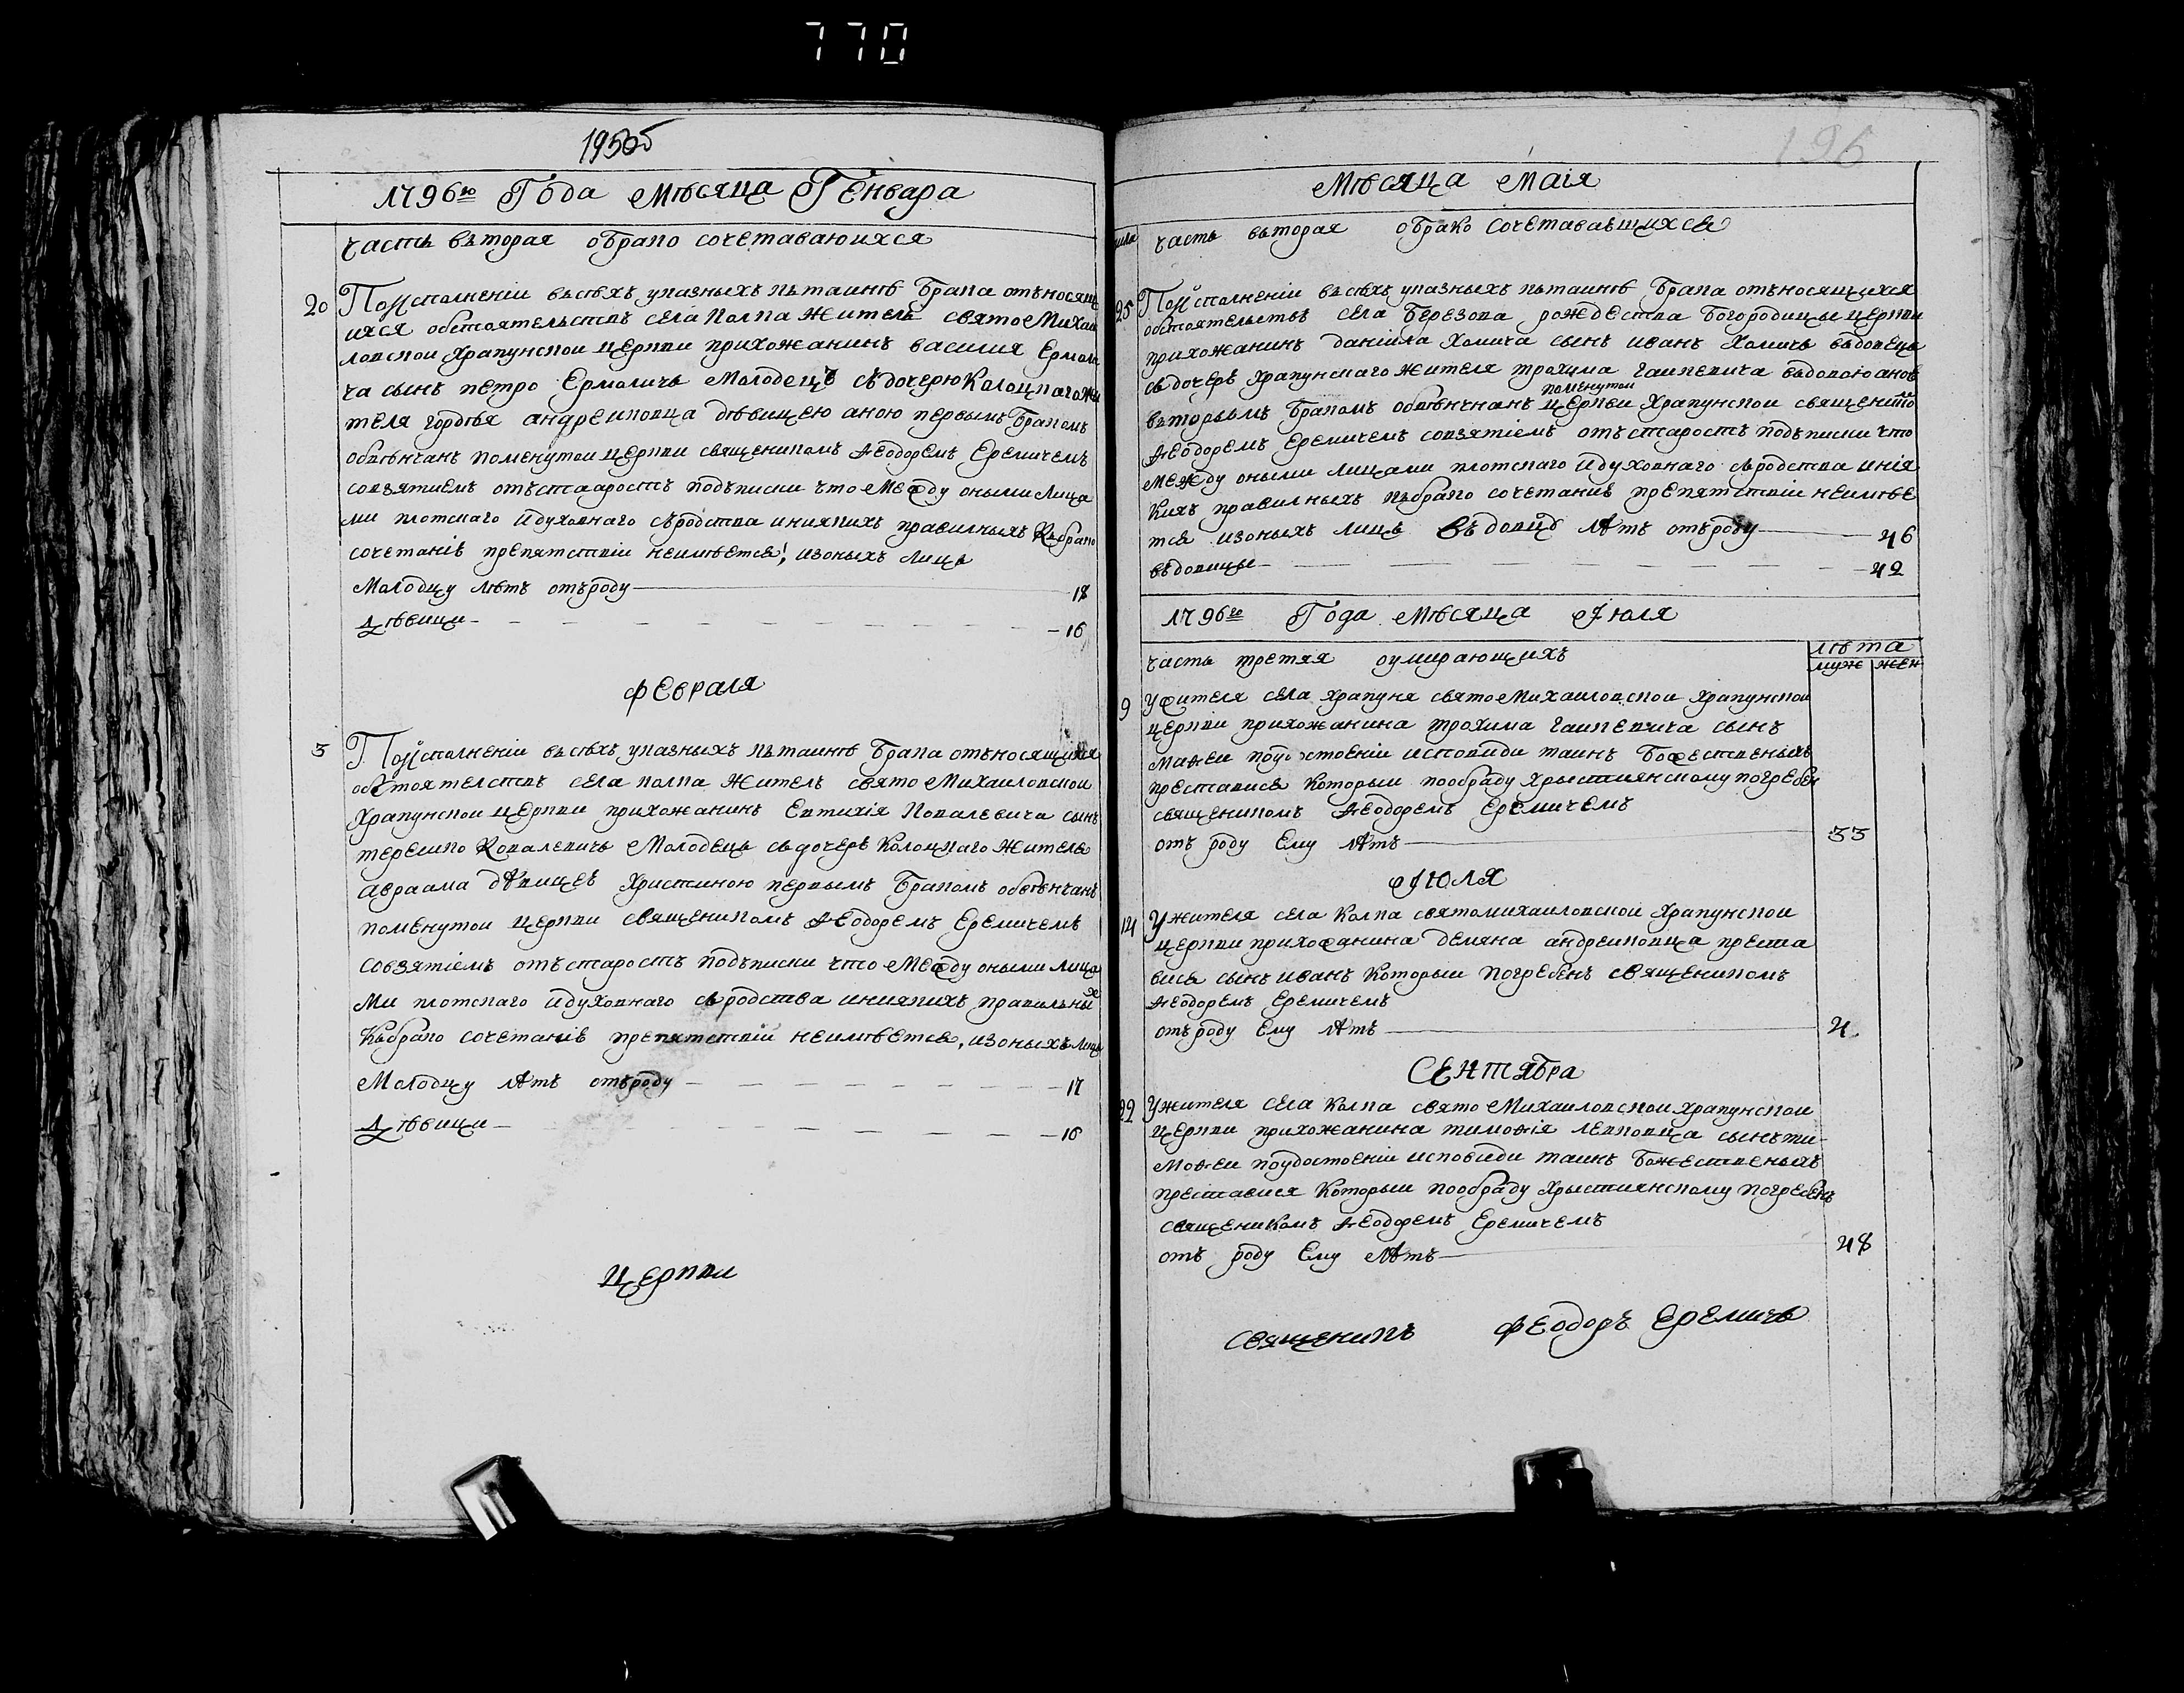 770
195об
1796го Года Мѣсяца Генвара
часть въторая о брако сочетаваюихся
20 По исполненіи въсѣхъ указныхъ къ таинѣ брака отъносящ
ихся обстоятельствъ села Колка житель свято Михаи
ловской Храпунской церкви прихожанинъ василия Ермоли
ча сынъ петро Ермоличъ молодецъ съ дочерю Колоцкаго жи
теля гордѣя андреиковца дѣвицею аною первымъ бракомъ
обвѣнчанъ поменутои церкви священикомъ Ѳеодоремъ Еремичемъ
совзятиемъ отъ стааростъ подъписки что между оными лица
ми плотскаго и духовнаго съродства и никакихъ правилныхъ къ брако
сочетанію препятствіи неимѣется, изоныхъ лицъ
Молодцу лѣтъ отъ роду 18
дѣвици 16
Февраля
3 По исполненіи въсѣхъ указныхъ къ таинѣ брака отъносящихся
обстоятелствъ села колка житель свято Михаиловской
Храпунской церкви прихожанинъ Евтихія Ковалевича сынъ
терешко Ковалевичъ Молодецъ съ дочерѣ Колоцкаго жителя
авраама дѣвицеѣ христиною первымъ бракомъ обвѣнчанъ
поменутои церкви священикомъ Ѳеодоремъ Еремичемъ
совзятіемъ отъ старостъ подъписки что между оными лица
ми плотскаго и духовнаго съродства и никакихъ правилныхъ
къ брако сочетаніѣ препятствіи неимѣется, изоныхъ лицъ
Молодцу лѣтъ отъ роду 17
дѣвици 16
Церкви
196
Мѣсяца Маія
числа часть въторая о брако сочетаваъшихся
25 По исполненіи въсѣхъ указныхъ къ таинѣ брака отъносящихся
обстоятельствъ села Березова рождества Богородицы церкви
прихожанинъ данійла Хомича сынъ иванъ Хомичъ въдовецъ
съ дочерѣ храпунскаго жителя трохима гацкевича въдовою аноѣ
въторымъ бракомъ обвѣнчанъ поменутои церкви Храпунской священико
Ѳеодоремъ Еремичемъ совзятіемъ отъ старостъ подъписки что
между оными лицами плотскаго и духовнаго съродства и нія
кихъ правилныхъ къ брако сочетаніѣ препятствіи неимѣе
тся изоныхъ лицъ въдовцѹ лѣтъ отъ роду 46
въдовицы 42
1796го Года Мѣсяца Июля
часть третяя оумирающихъ лѣта
муж жен
9 У жителя села храпуня свято Михаиловской Храпунской
церкви прихожанина трохима гацкевича сынъ
маѳеи поудостоеніи исповиди таинъ Божественыхъ
преставися который пообраду хрыстиянскому погребен
священикомъ Ѳеодоремъ Еремичемъ
отъ роду ему лѣтъ 33
Июля
14 У жителя села Колка святомихаиловской Храпунской
церкви прихожанина демяна андреиковца преста
вися сынъ иванъ который погребенъ священикомъ
Ѳеодоремъ Еремичемъ
отъ роду ему лѣтъ 4
Сентября
22 У жителя села Колка свято Михаиловской Храпунской
церкви прихожанина тимоѳія левковца сынъ ти-
моѳеи поудостоеніи исповѣди таинъ Божественыхъ
преставися который пообраду хрыстиянскому погребенъ
священикомъ Ѳеодоремъ Еремичемъ
отъ роду ему лѣтъ 48
Священикъ Феодоръ Еремичъ